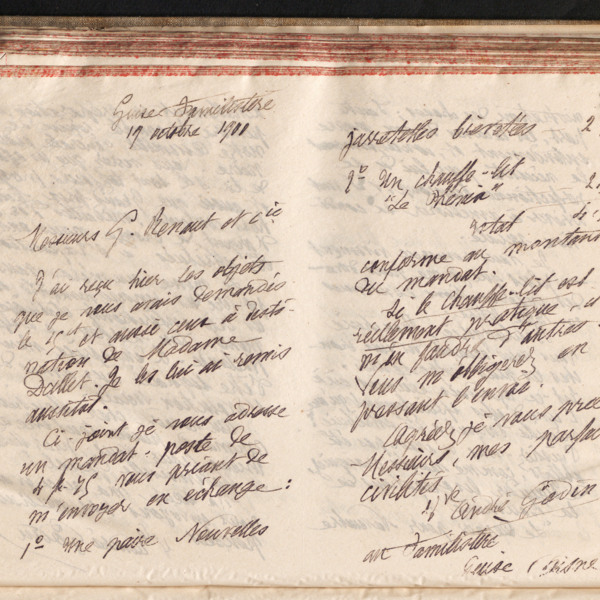 Guise Familistère
19 octobre 1900
Messieurs G. Renaut et Cie
J'ai reçu hier les objets
que je vous avais demandés
le 15 et et aussi ceux à desti-
nation de Madame
Dallet. Je les lui ai remis
aussitôt.
Ci-joint je vous adresse
un mandat-poste de
4 f. 75 vous priant de
m'envoyer en échange :
1º Une paire Nouvelles
jarretelles brevetées — 2
2º Un chauffe-lit
"Le
total 4
conforme au montant
du mandat.
Si le chauffe-lit est
réellement pratique,
d'autres.
Vous m'obligerez en
pressant l'envoi.
Agréez, je vous
Messieurs, mes
civilités
Vve André Godin
au Familistère
Guise (Aisne